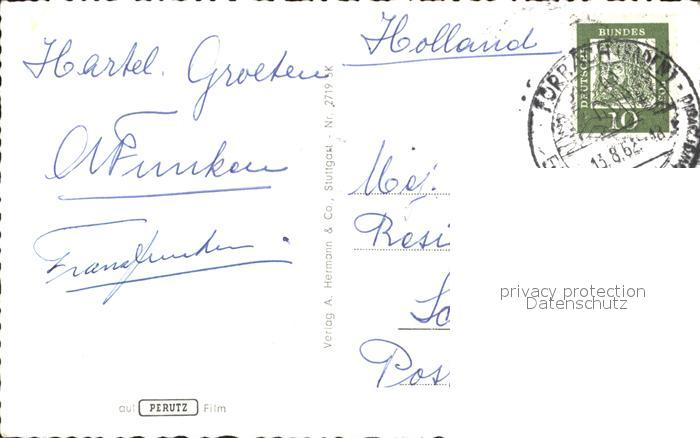 Hartel. Groeten
Funken
Holland
Mej.
Resi
Pos
Verlag A. Hermann & Co., Stuttgart - Nr. 2719 SK
auf PERUTZ Film
BUNDES
DEUTSCHE
10
13.8.62.-18
privacy protection
Datenschutz